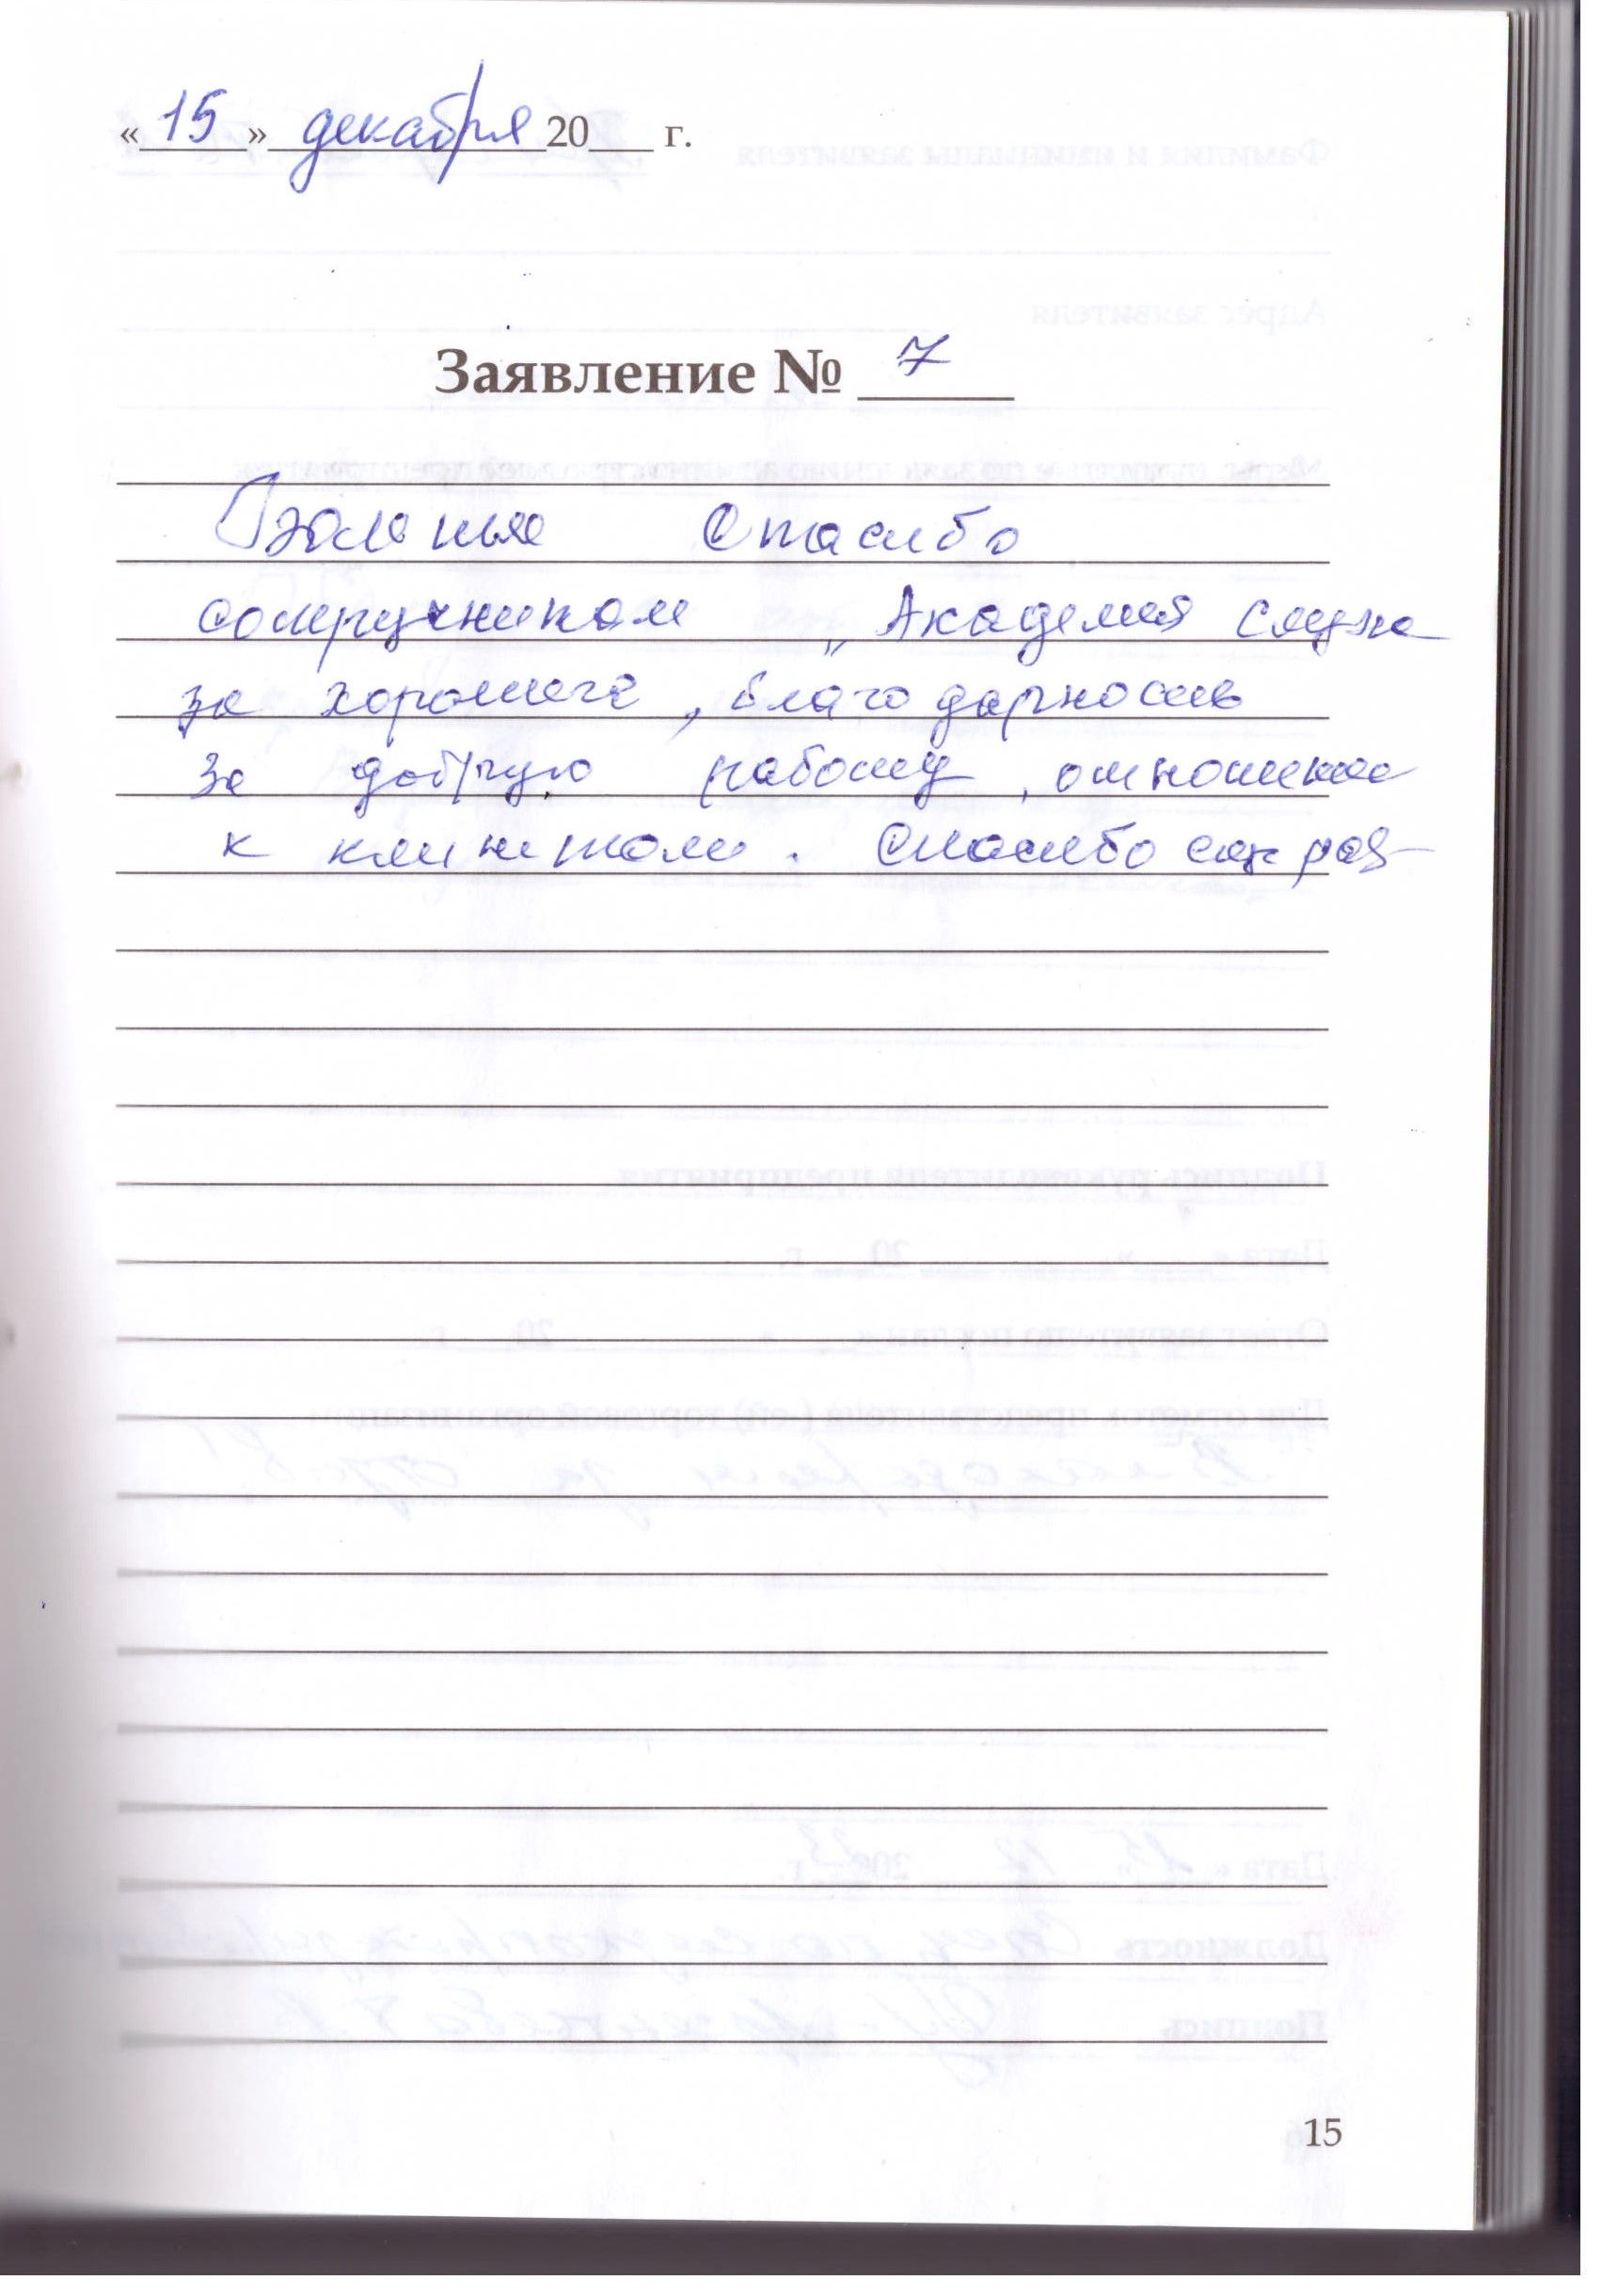 « 15 » декабря 20___ г.
Заявление № 7
Большое Спасибо
сотрудникам „Академия слуха
за хорошее, благодарность
за добрую работу, отношение
к клиентам. Спасибо
15